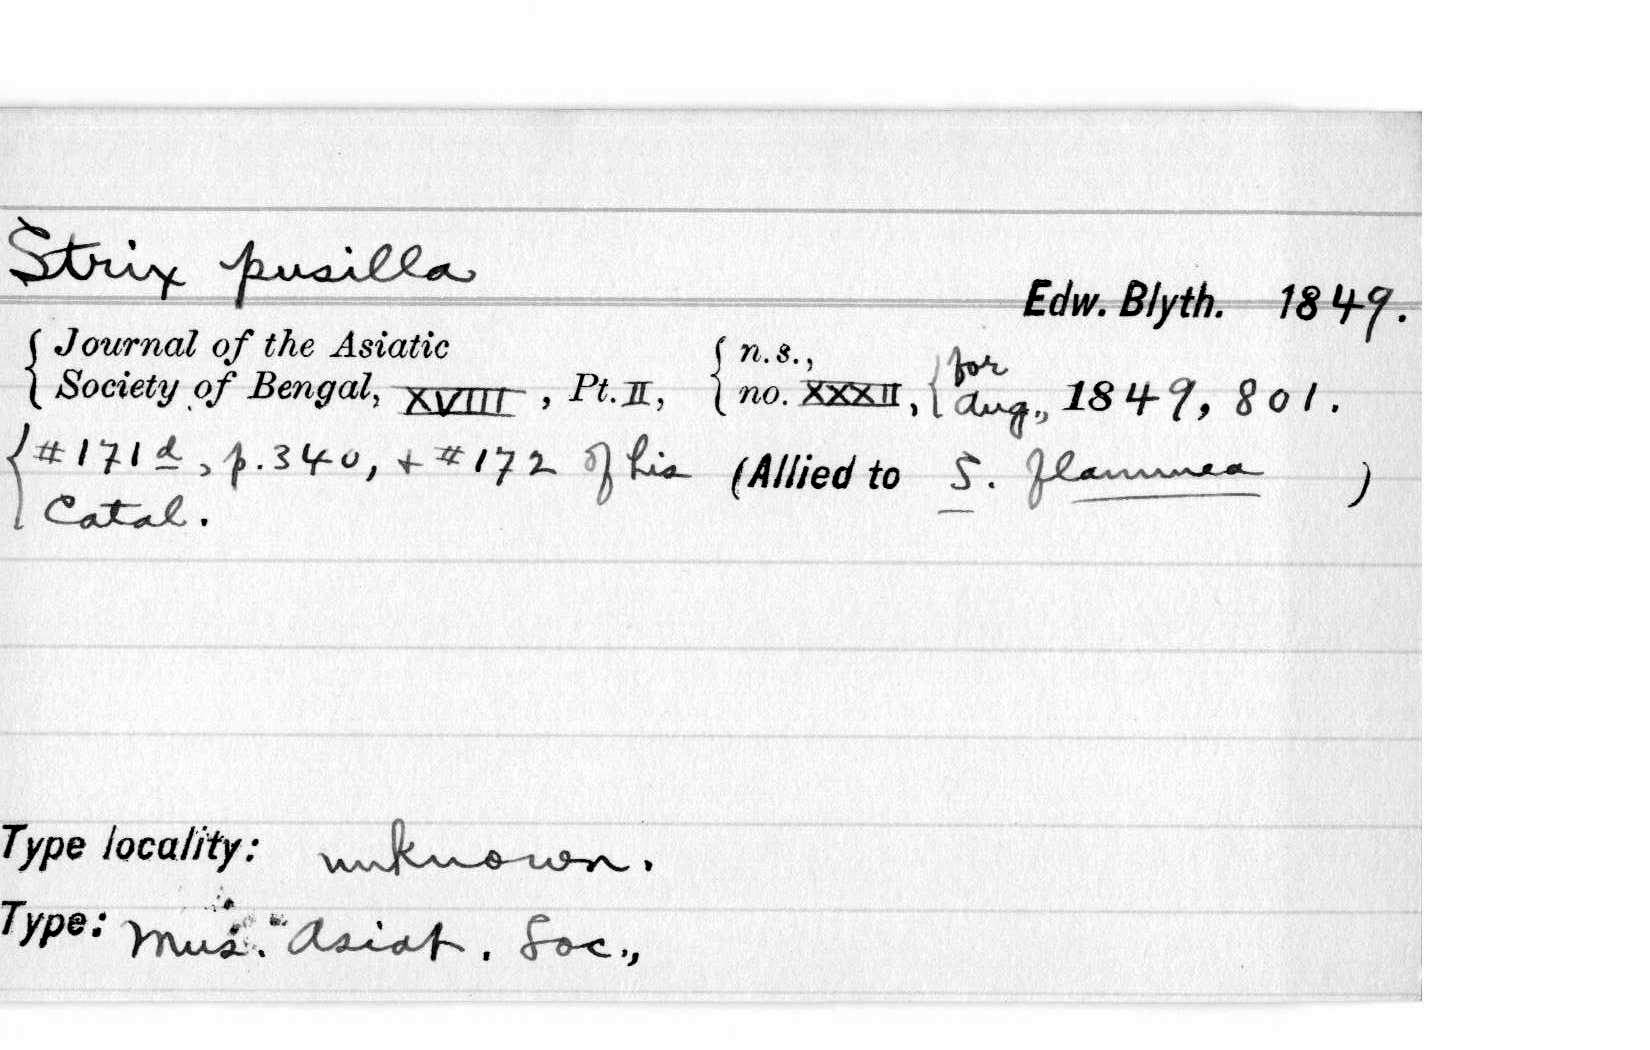 Strix pusilla
Edw. Blyth. 1849.
{ Journal of the Asiatic { n.s., { for
Society of Bengal, XVIII, Pt. II, no. XXXII, Aug., 1849, 801.
{ #171d, p.340, + #172 of his (Allied to S. flammea )
Catal.
Type locality: unknown.
Type: Mus. Asiat. Soc.,